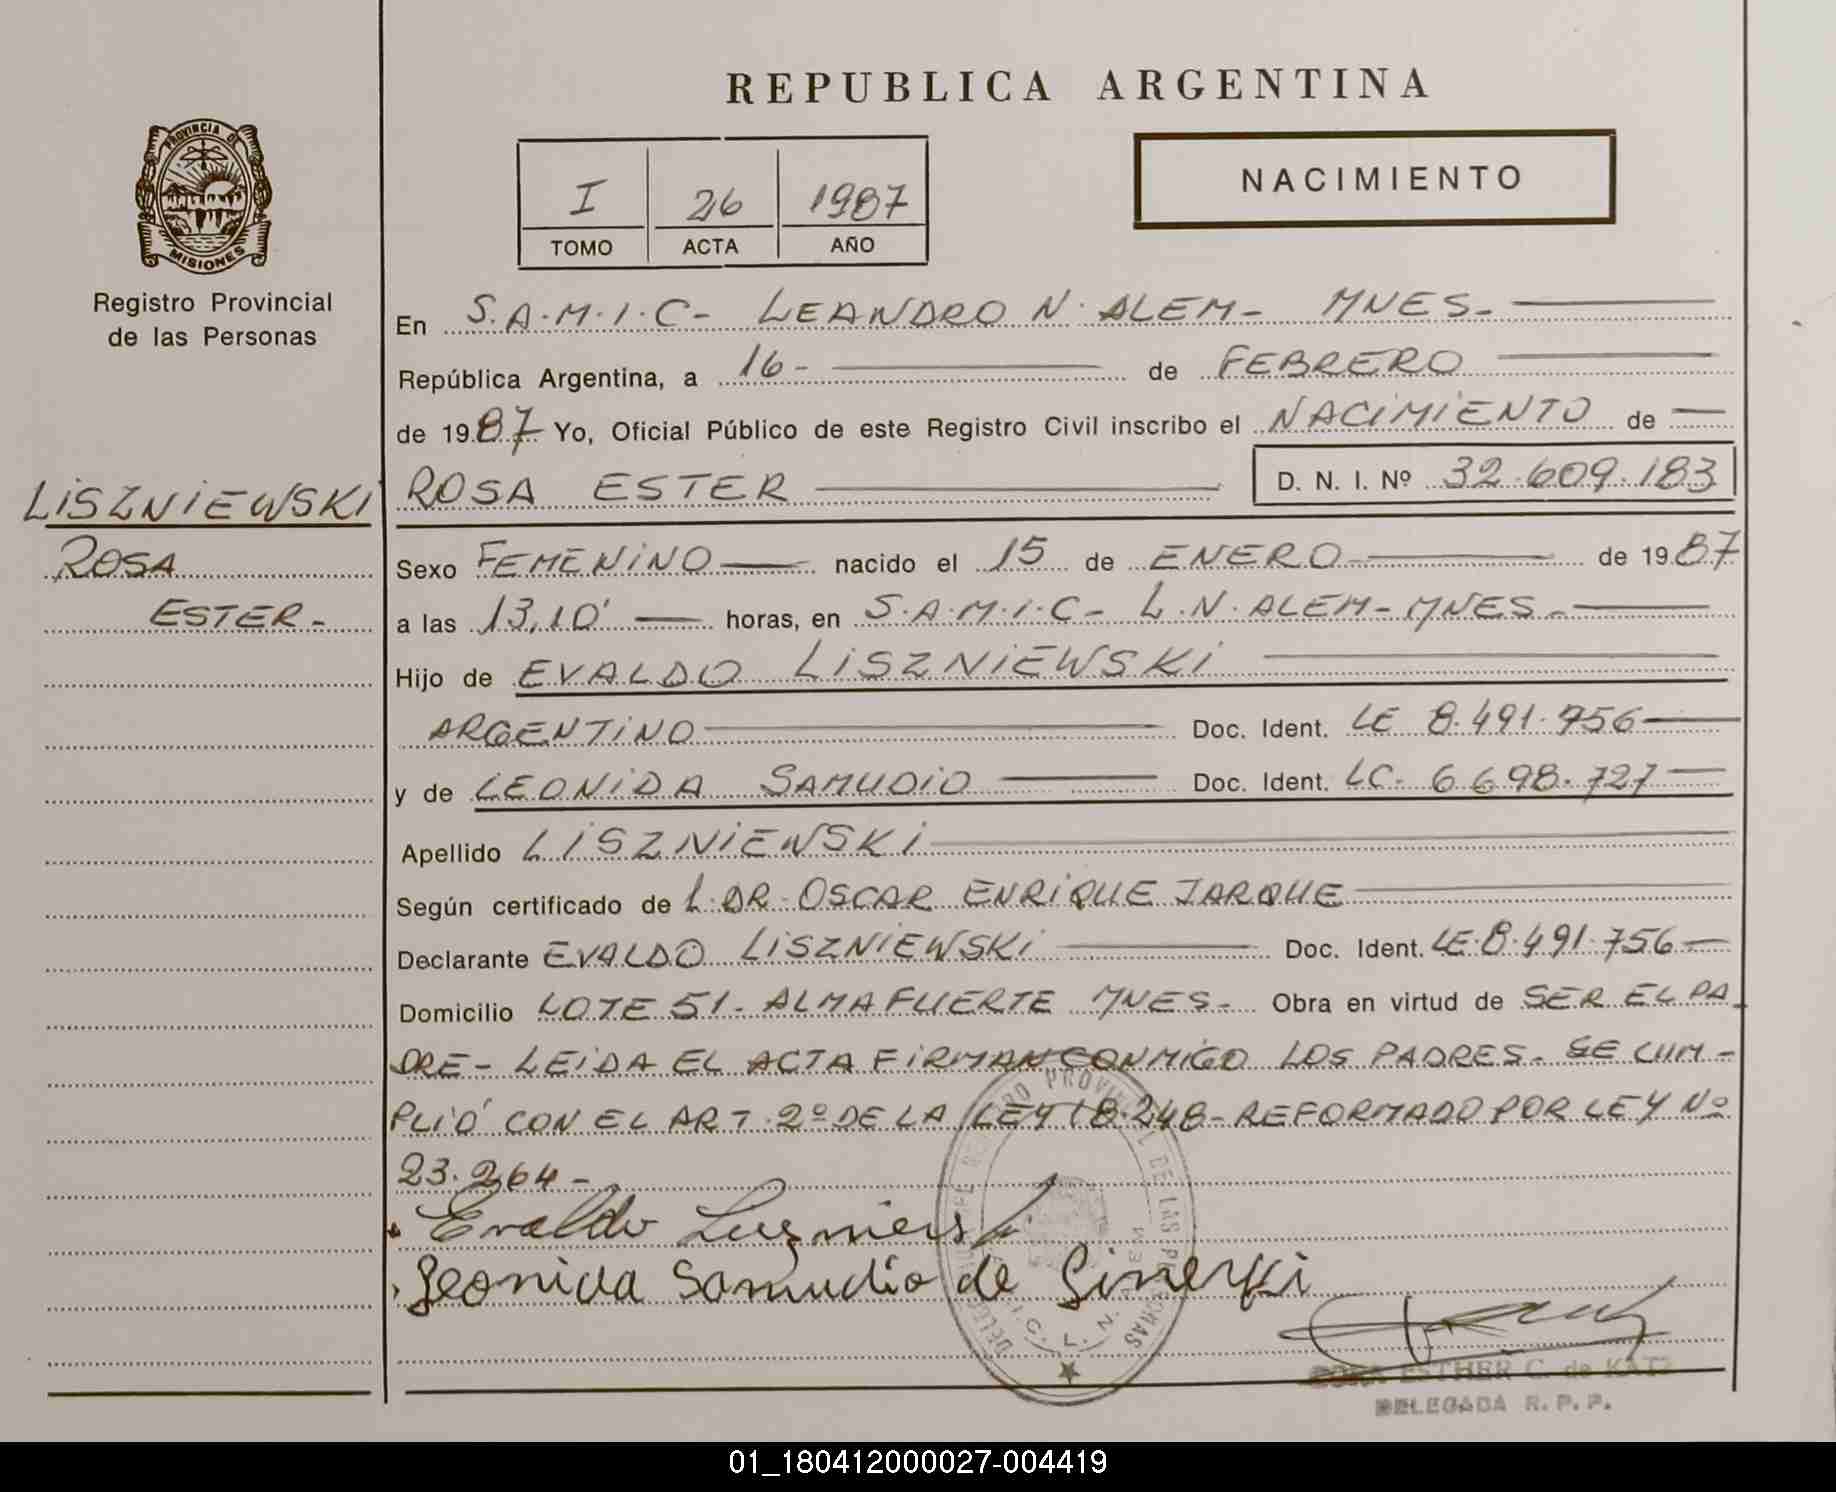 REPUBLICA ARGENTINA
PROVINCIA DE
MISIONES
Registro Provincial
de las Personas
I 26 1987
TOMO ACTA AÑO
NACIMIENTO
En S.A.M.I.C- LEANDRO N. ALEM- MNES-
República Argentina, a 16- de FEBRERO
de 1987 Yo, Oficial Público de este Registro Civil inscribo el NACIMIENTO de
LISZNIEWSKI
ROSA
ESTER-
ROSA ESTER D. N. I. Nº 32.609.183
Sexo FEMENINO nacido el 15 de ENERO de 1987
a las 13,10' horas, en S.A.M.I.C- L.N. ALEM-MNES-
Hijo de EVALDO LISZNIEWSKI
ARGENTINO Doc. Ident. LE 8.491.756
y de LEONIDA SAMUDIO Doc. Ident. LC- 6698.727
Apellido LISZNIEWSKI
Según certificado de L. DR. OSCAR ENRIQUE JARQUE
Declarante EVALDO LISZNIEWSKI Doc. Ident. LE.8.491.756
Domicilio LOTE 51- ALMAFUERTE MNES- Obra en virtud de SER EL PA-
DRE- LEIDA EL ACTA FIRMAN CONMIGO LOS PADRES- SE CUM-
PLIÓ CON EL ART. 2º DE LA LEY 18.248- REFORMADO POR LEY Nº
23.264-
Evaldo
Leonida Samudio de
ESTHER C. de KATZ
DELEGADA R. P. P.
01_180412000027-004419